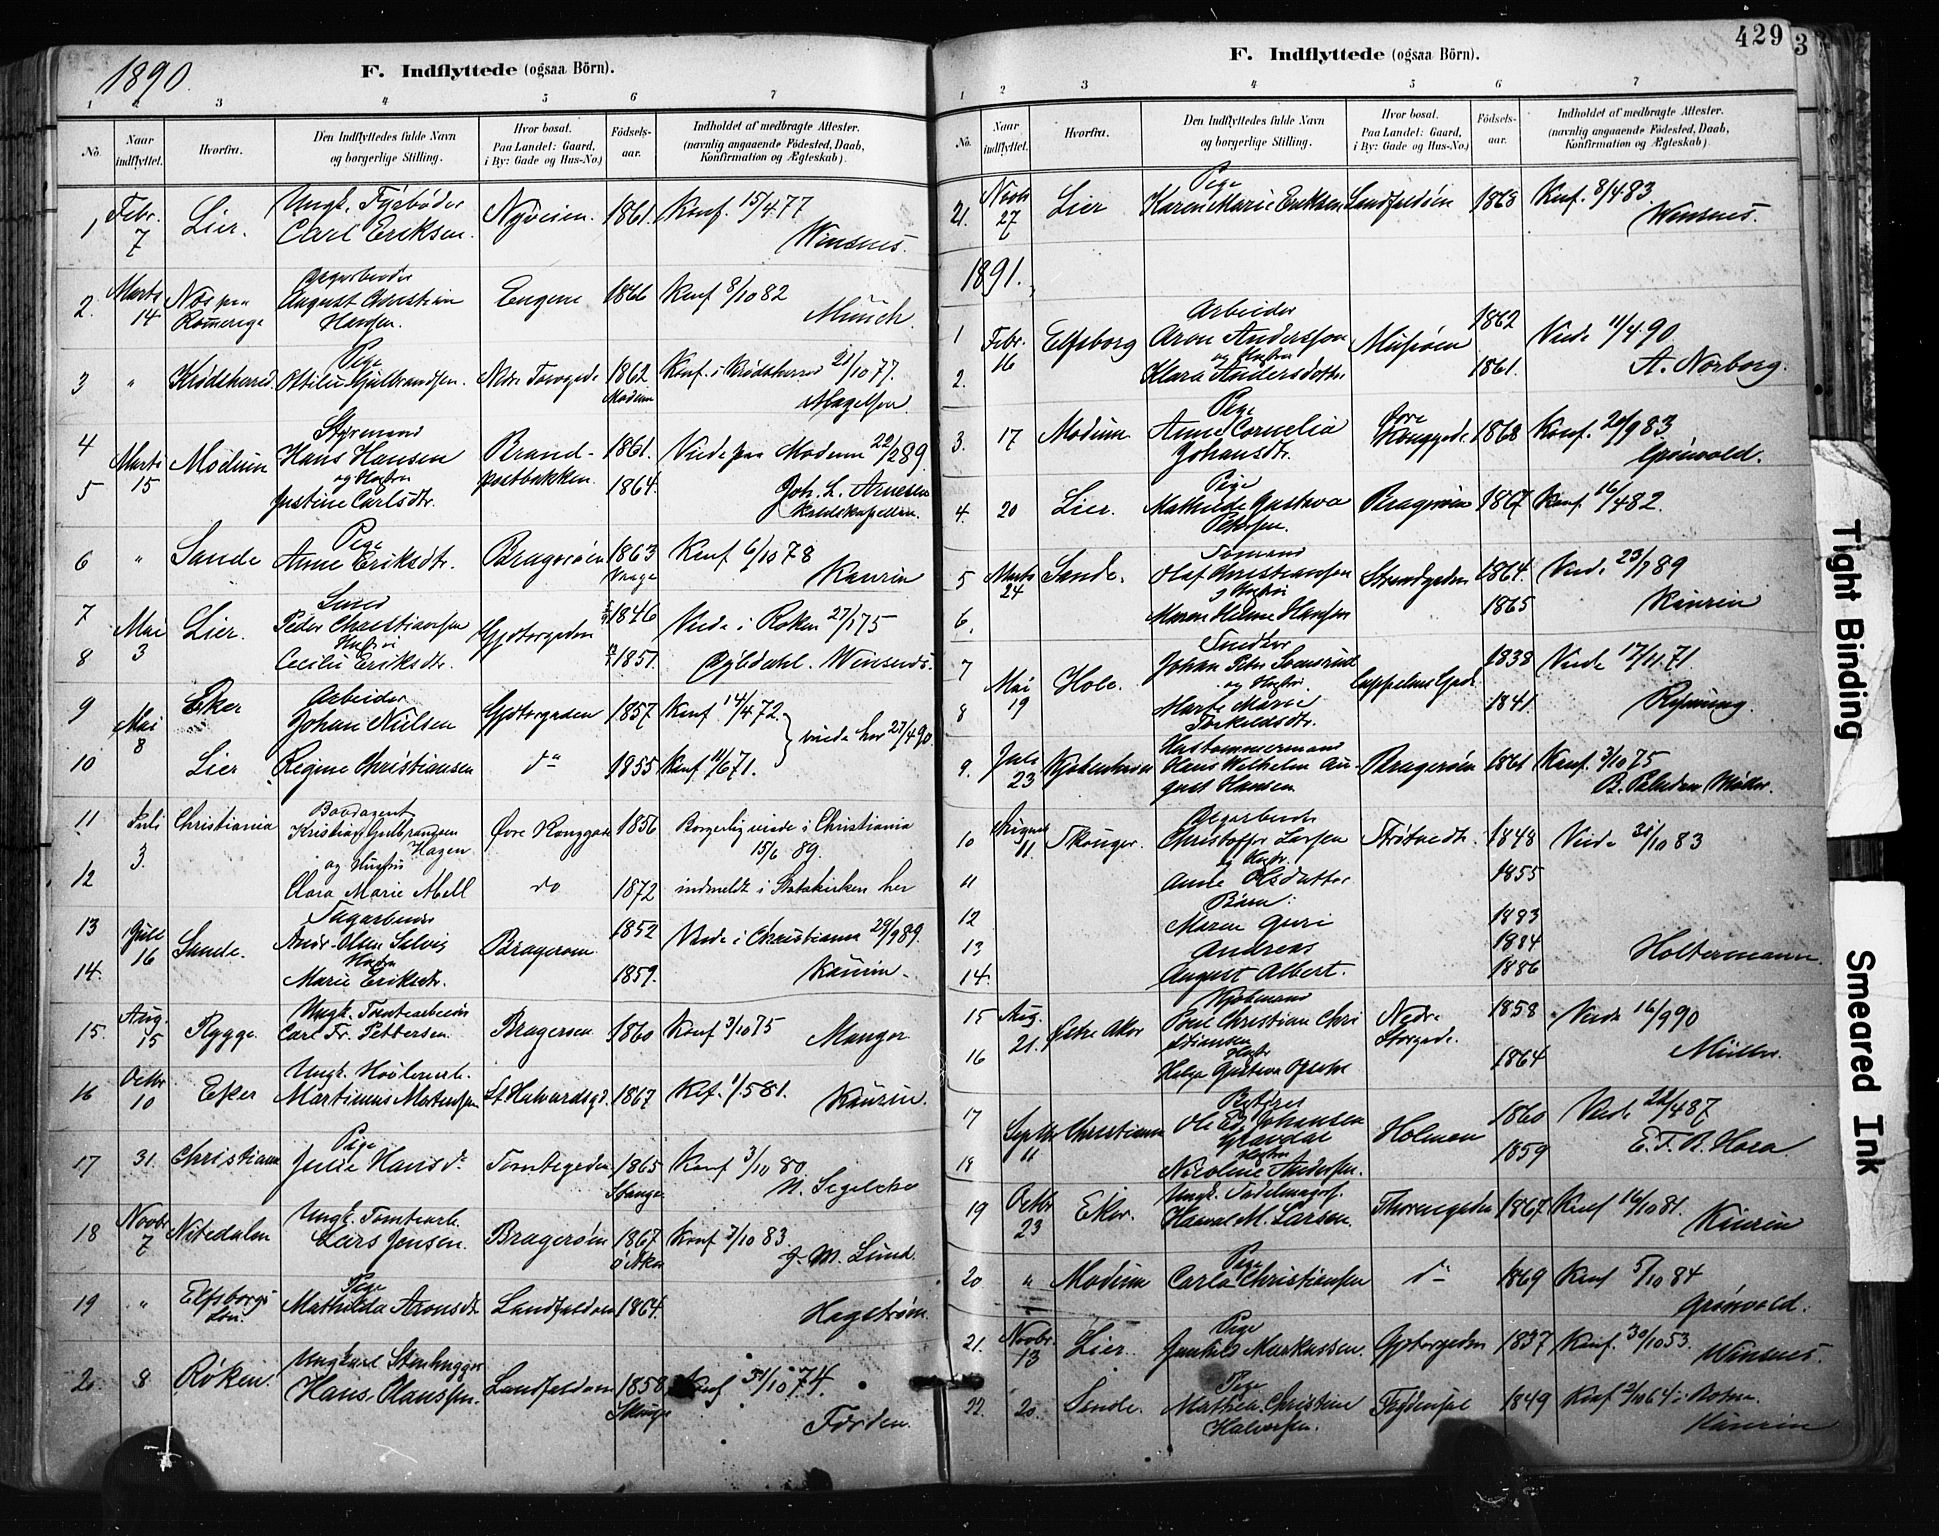 1890.
F. Indflyttede (ogsaa Börn).
1 2 3 4 5 6 7
No. Naar indflyttet. Hvorfra. Den Indflyttedes fulde Navn og borgerlige Stilling. Hvor bosat. Paa Landet: Gaard, i By: Gade og Hus-No.) Födsels-aar. Indholdet af medbragte Attester. (navnlig angaaende Födested, Daab, Konfirmation og Ægteskab).
1 Febr. 7 Lier. Ungk. Carl Eriksen. Nyveien. 1861. Konf. 15/4 77 Winsnes.
2. Marts 14 August Christian Hansen. Engene 1866 Konf 8/10 82 Münch.
3 " Krødsherred Pige Otilie Gulbrandsen. 1862 Modum Konf. i Krødsherred 21/10 77. Magelsen
4 Marts 15 Modum Styrmand Hans Hansen Brandpostbakken. 1861. Viede paa Modum 22/2 89
5 og Hustru Justine Carlsdtr. 1864. Joh. L. Arnesen
6 " Sande Pige Anne Eriksdtr. Bragerøen 1863 Konf 6/10 78 Kaurin
7 Mai 3 Lier. Peder Christiansen Gjetergaden 1846 Viede i Røken 27/1 75
8 Cecilie Eriksdtr. 1851. Winsnes.
9 Mai 8 Eker Arbeider Johan Nielsen Gjetergaden 1857 Konf 14/4 72. viede her 27/4 90
10 Lier Regine Christiansen do 1855 Konf 11/6 71.
11 Juli 3. Christiania Kristian Gulbrandsen Hagen Øvre Konggade 1856 Borgerlig viede i Christiania 15/6 89.
12 og Hustru Clara Marie Abell do 1872 indmeldt i Statskirken her
13 Juli 16 Sande. Andr. Olsen Selvig Bragerøen 1852 Viede i Christiania 29/9 89.
14. Hustru Marie Eriksdtr. 1859. Kaurin.
15. Aug. 15 Rygge. Ungk. Tomtearbeider Carl Fr. Pettersen. Bragerøen 1860 Konf 3/10 75 Mangor
16 Octbr 10 Eker Ungk. Martinius Mortensen St. Halvardsgd. 1867 Kof. 1/5 81. Kaurin.
17 31. Christiania Pige Julie Hansd. Tomtegaden 1865 Stange Konf 3/10 80 N. Segelcke
18 Novbr 7 Nitedalen Ungk. Tomtearb. Lars Jensen. Bragerøen 1867 Konf 7/10 83 J. M. Lund.
19 " Elfsborgs Län Pige Mathilda Aronsdtr Landfaldøen 1864. Hagstrøm
20 8 Røken. Ungkarl Stenhugger Hans Olaussen. Landfaldøen 1858 Konf 31/10 74. Førden.
429
3
F. Indflyttede (ogsaa Börn).
1 2 3 4 5 6 7
No. Naar indflyttet. Hvorfra. Den Indflyttedes fulde Navn og borgerlige Stilling. Hvor bosat. Paa Landet: Gaard, i By: Gade og Hus-No.) Födsels-aar. Indholdet af medbragte Attester. (navnlig angaaende Födested, Daab, Konfirmation og Ægteskab).
21. Novb 27 Lier Pige Karen Marie Eriksen Landfaldøen 1868 Konf. 8/4 83. Winsnes.
1891.
1 Febr. 16 Elfsborg Arbeider Aron Andersson 1862 Viede 11/4 90
2. og Hustru Klara Andersdotter 1861. A. Norborg.
3. 17 Modum Pige Anne Cornelia Johansdt. Øvre Konggade 1868 Konf. 20/9 83. Grønvold.
4. 20 Lier. Pige Mathilde Gustava Petersen. Bragerøen 1867 Konf. 16/4 82.
5 Marts 24 Sande. Olaf Christiansen Strandgaden 1864. Viede 23/1 89
6. og Hustru Maren Helene Hansen 1865 Kaurin
7 Mai 19 Hole. Snedker Johan Peter Cappelens Gade. 1838 Viede 17/11 71.
8 og Hustru Marte Marie Torkildsdtr. 1841.
9. Juli 23 Kjøbenhavn Hustømmermand Hans Wilhelm August Hansen Bragerøen 1861 Konf. 3/10 75 B. Paludan Müller.
10 August 11 Skouger. Christoffer Larsen 1848 Viede 31/10 83
11 og Hustr. Anne Olsdatter 1855
Børn:
12 Maren Guri 1883
13 Andreas 1884
14. August Albert. 1886 Holtermann.
15 Aug. 21. Østre Aker Kjøbmand Christian Christiansen Nedre Storgade. 1858 Viede 16/9 90
16 Hustr Helga Gustava 1864 Müller.
17 Septbr 11 Christiania Ole Johansen Holmen 1860 Viede 22/4 87
18 Hustru Nicoline Andersen. 1859 E. F. B. Horn
19 Octbr 23 Eker. Ungk. M. Larsen. Thornegaden 1867 Konf 16/10 81. Kaurin
20 " Modum Pige Carla Christiansen do 1869 Konf 5/10 84 Grønvold.
21. Novbr. 13 Lier. Pige Markussen. Gjetergaden 1837 Konf. 30/10 53. Winsnes.
22. 20. Sande. Pige Mathea Christine Halvorsen. 1849 Konf 2/10 64 i Botne Kaurin
Tight Binding
Smeared Ink